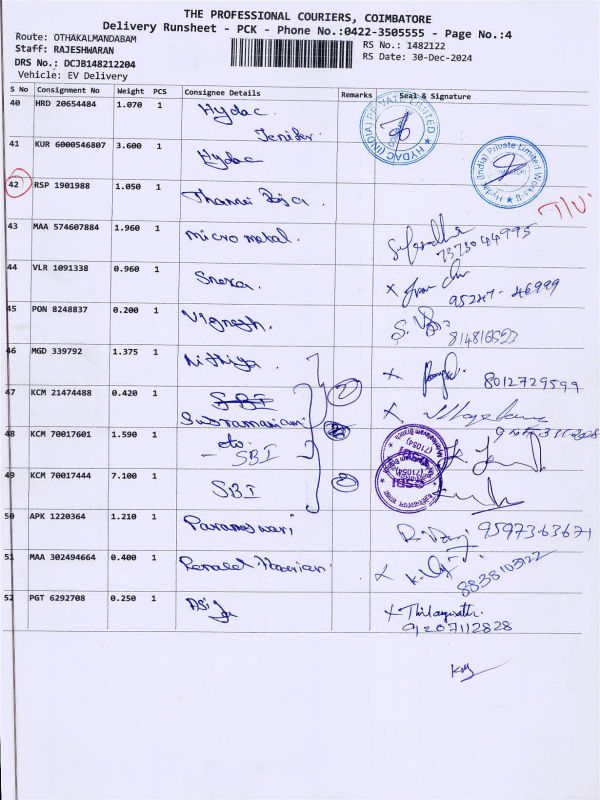 THE PROFESSIONAL COURIERS, COIMBATORE
Delivery Runsheet - PCK - Phone No.:0422-3505555 - Page No.:4
Route: OTHAKALMANDABAM
Staff: RAJESHWARAN
RS No.: 1482122
DRS No.: DCJB148212204
RS Date: 30-Dec-2024
Vehicle: EV Delivery
S No Consignment No Weight PCS Consignee Details Remarks Seal & Signature
40 HRD 20654484 1.070 1 Hydac
Jenifer
HYDAC (INDIA) PRIVATE LIMITED
41 KUR 6000546807 3.600 1 Hydac
Hydac (India) Private Limited Works-II
42 RSP 1901988 1.050 1
43 MAA 574607884 1.960 1 micro metal.
7373044995
44 VLR 1091338 0.960 1 Sneka.
x 95247-46999
45 PON 8248837 0.200 1 Vignesh.
46 MGD 339792 1.375 1 Nithiya.
x 8012729599
47 KCM 21474488 0.420 1 SBI
Subramaniam
x
48 KCM 70017601 1.590 1
- SBI
SBI
(71054)
49 KCM 70017444 7.100 1 SBI
50 APK 1220364 1.210 1 Parameswari
9597363671
51 MAA 302494664 0.400 1
x 8838103122
52 PGT 6292708 0.250 1
x
91207112828